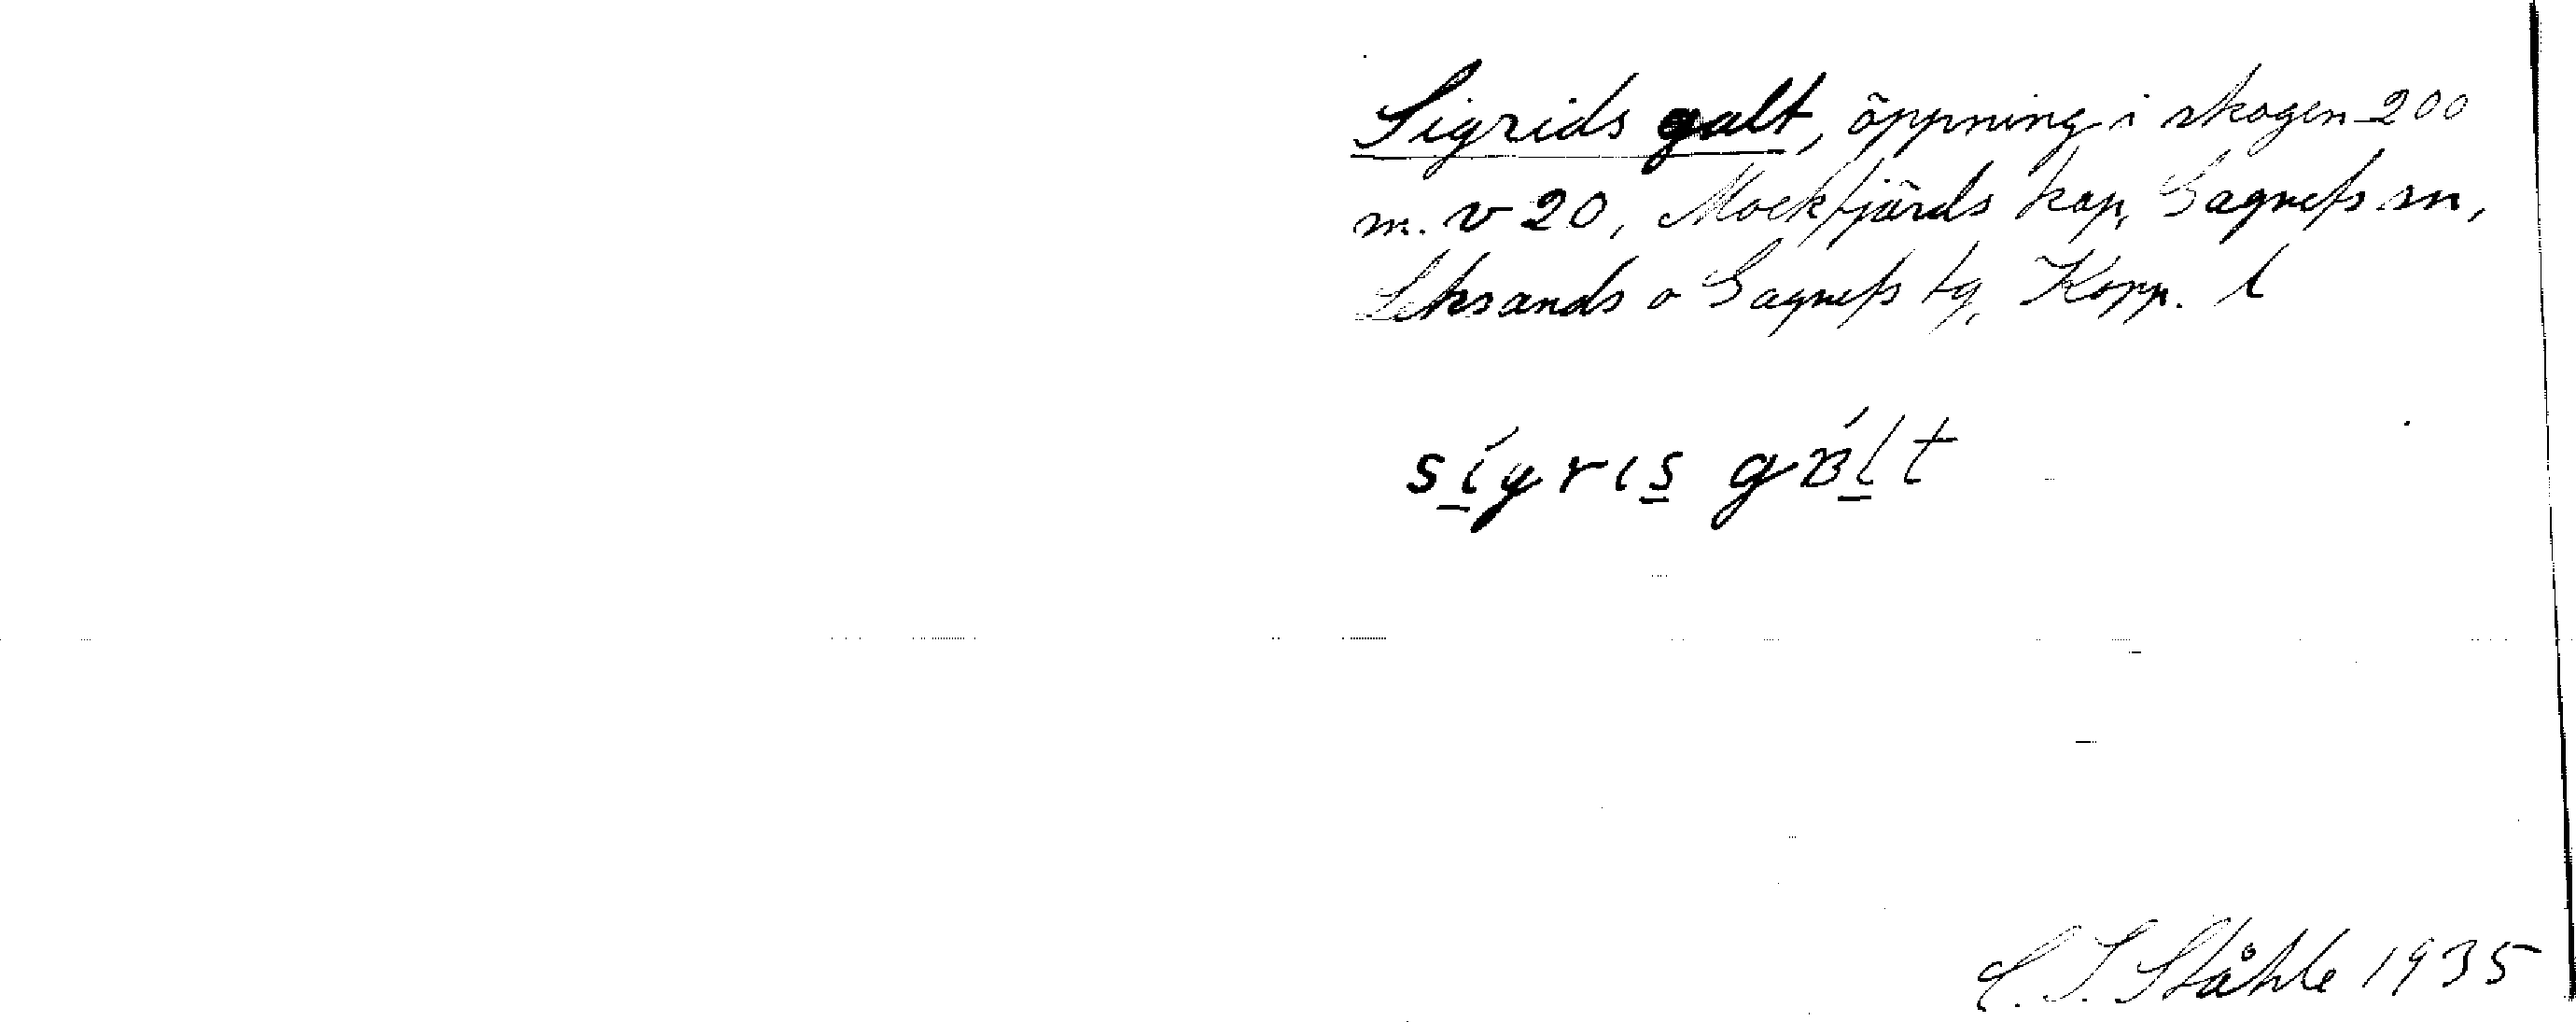 Sigrids galt, öppning i skogen 200
m. v 20, Mockfjärds kap, Gagnefs sn,
Leksands o Gagnefs tg, Kopp. l
sígris gált
C. I. Ståhle 1935